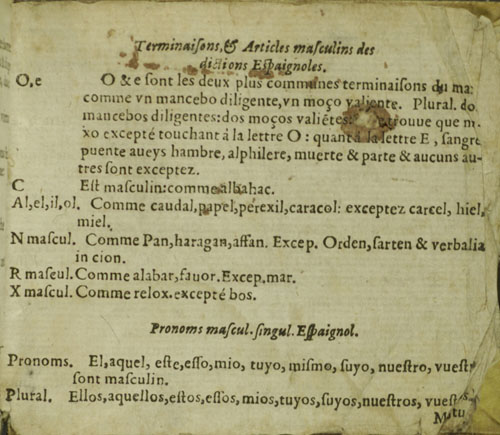 Terminaiſons, & Articles maſculins des
dictions Eſpaignoles.
O, e O & e ſont les deux plus communes terminaiſons du ma:
comme vn mancebo diligente, vn moço valiente. Plural. do
mancebos diligentes: dos moços valiẽtes: trouue que
xo excepté touchant à la lettre O: quant à la lettre E, ſangre
puente aueys hambre, alphilere, muerte & parte & aucuns au-
tres ſont exceptez.
C Eſt maſculin: comme albahac.
Al, el, il, ol. Comme caudal, papel, perexil, caracol: exceptez carcel, hiel,
miel.
N maſcul. Comme Pan, haragan, affan. Excep. Orden, ſarten & verbalia
in cion.
R maſcul. Comme alabar, fauor. Excep. mar.
X maſcul. Comme relox. excepté bos.
Pronoms maſcul. ſingul. Eſpaignol.
Pronoms. El, aquel, eſte, eſſo, mio, tuyo, miſmo, ſuyo, nueſtro, vueſtr
ſont maſculin.
Plural. Ellos, aquellos, eſtos, eſſos, mios, tuyos, ſuyos, nueſtros, vueſ